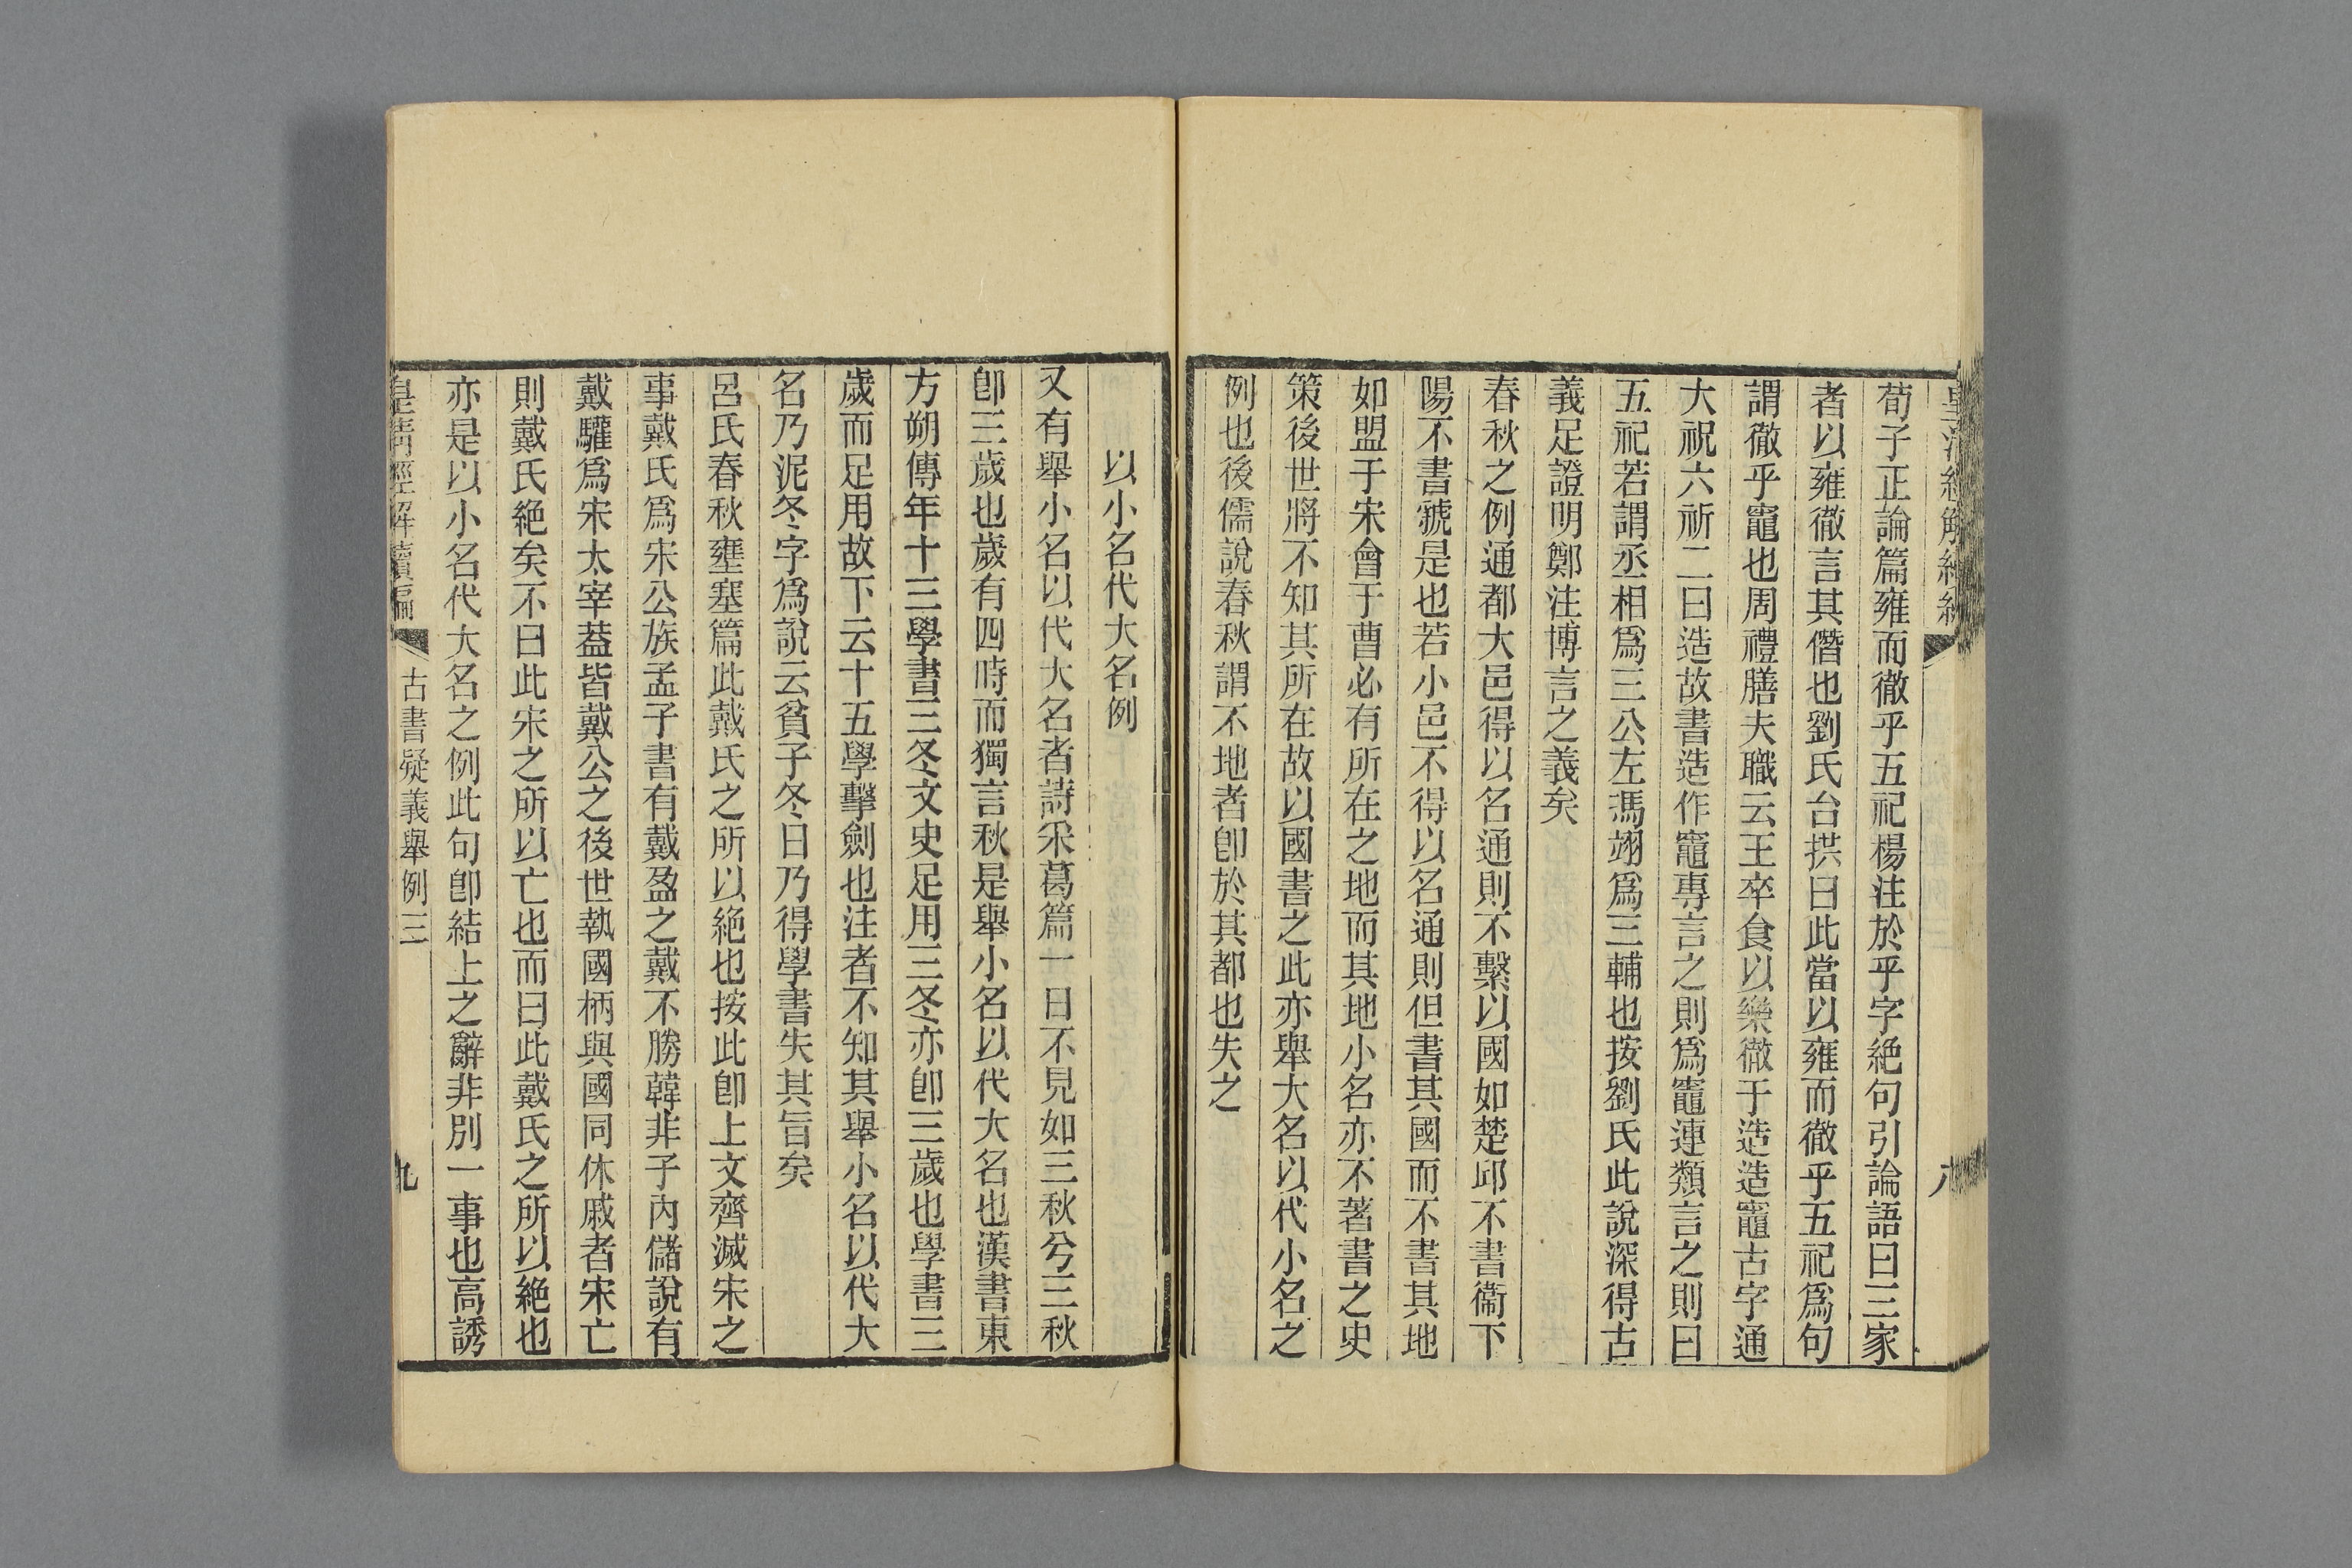 荀子正論篇雍而徹乎五祀楊注於乎字絶句引論語曰三家
者以雍徹言其僭也劉氏台拱曰此當以雍而徹乎五祀爲句
謂徹乎竈也周禮膳夫職云王卒食以樂徹于造造竈古字通
大祝六祈二曰造故書造作竈專言之則爲竈連類言之則曰
五祀若謂丞相爲三公左馮翊爲三輔也按劉氏此說深得古
義足證明鄭注博言之義矣
春秋之例通都大邑得以名通則不繫以國如楚邱不書衞下
陽不書虢是也若小邑不得以名通則但書其國而不書其地
如盟于宋會于曹必有所在之地而其地小名亦不著書之史
策後世將不知其所在故以國書之此亦舉大名以代小名之
例也後儒說春秋謂不地者卽於其都也失之
以小名代大名例
又有舉小名以代大名者詩采葛篇一日不見如三秋兮三秋
卽三歲也歲有四時而獨言秋是舉小名以代大名也漢書東
方朔傳年十三學書三冬文史足用三冬亦卽三歲也學書三
歲而足用故下云十五學擊劍也注者不知其舉小名以代大
名乃泥冬字爲說云貧子冬日乃得學書失其旨矣
呂氏春秋壅塞篇此戴氏之所以絶也按此卽上文齊滅宋之
事戴氏爲宋公族孟子書有戴盈之戴不勝韓非子內儲說有
戴驩爲宋太宰葢皆戴公之後世執國柄與國同休戚者宋亡
則戴氏絶矣不曰此宋之所以亡也而曰此戴氏之所以絶也
亦是以小名代大名之例此句卽結上之辭非別一事也高誘
皇清經解續編
古書疑義舉例三
九